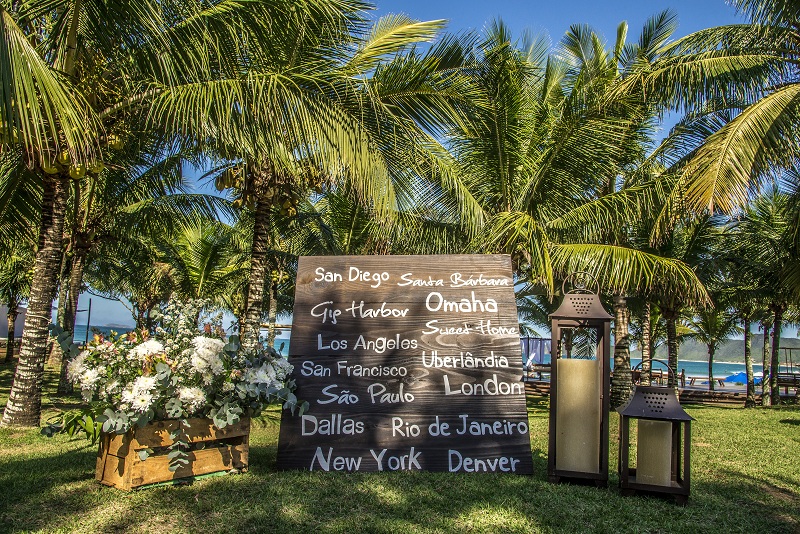 San Diego Santa Bárbara
Gip Harbor Omaha
Los Angeles Sweet Home
San Francisco Uberlândia
São Paulo London
Dallas Rio de Janeiro
New York Denver